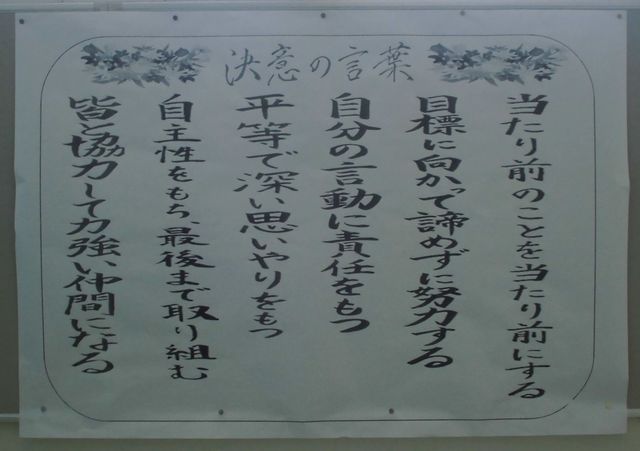 決意の言葉
当たり前のことを当たり前にする
目標に向かって諦めずに努力する
自分の言動に責任をもつ
平等で深い思いやりをもつ
自主性をもち、最後まで取り組む
皆と協力して力強い仲間になる